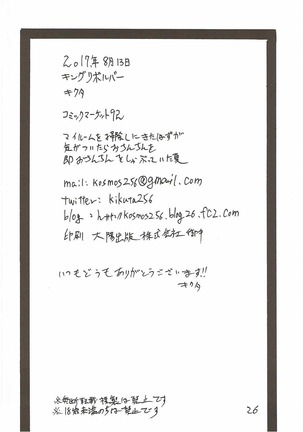 2017年8月13日
キングリボルバー
キクタ
コミックマーケット92
マイルームを掃除しにきたはずが
気がついたらおちんちんを
即おちんちんをしゃぶっていた夏
mail: kosmos256@gmail.com
twitter: kikuta256
blog : http://kosmos256.blog26.fc2.com
印刷 太陽出版 株式会社 御中
いつもどうもありがとうございます!!
キクタ
※無断転載 複製は禁止です
※18歳未満の は禁止です
26